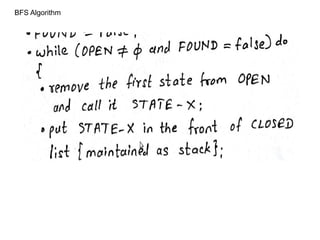 BFS Algorithm
• FOUND = false;
• while (OPEN ≠ ϕ and FOUND = false) do
{
• remove the first state from OPEN
and call it STATE-X;
• put STATE-X in the front of CLOSED
list {maintained as stack};